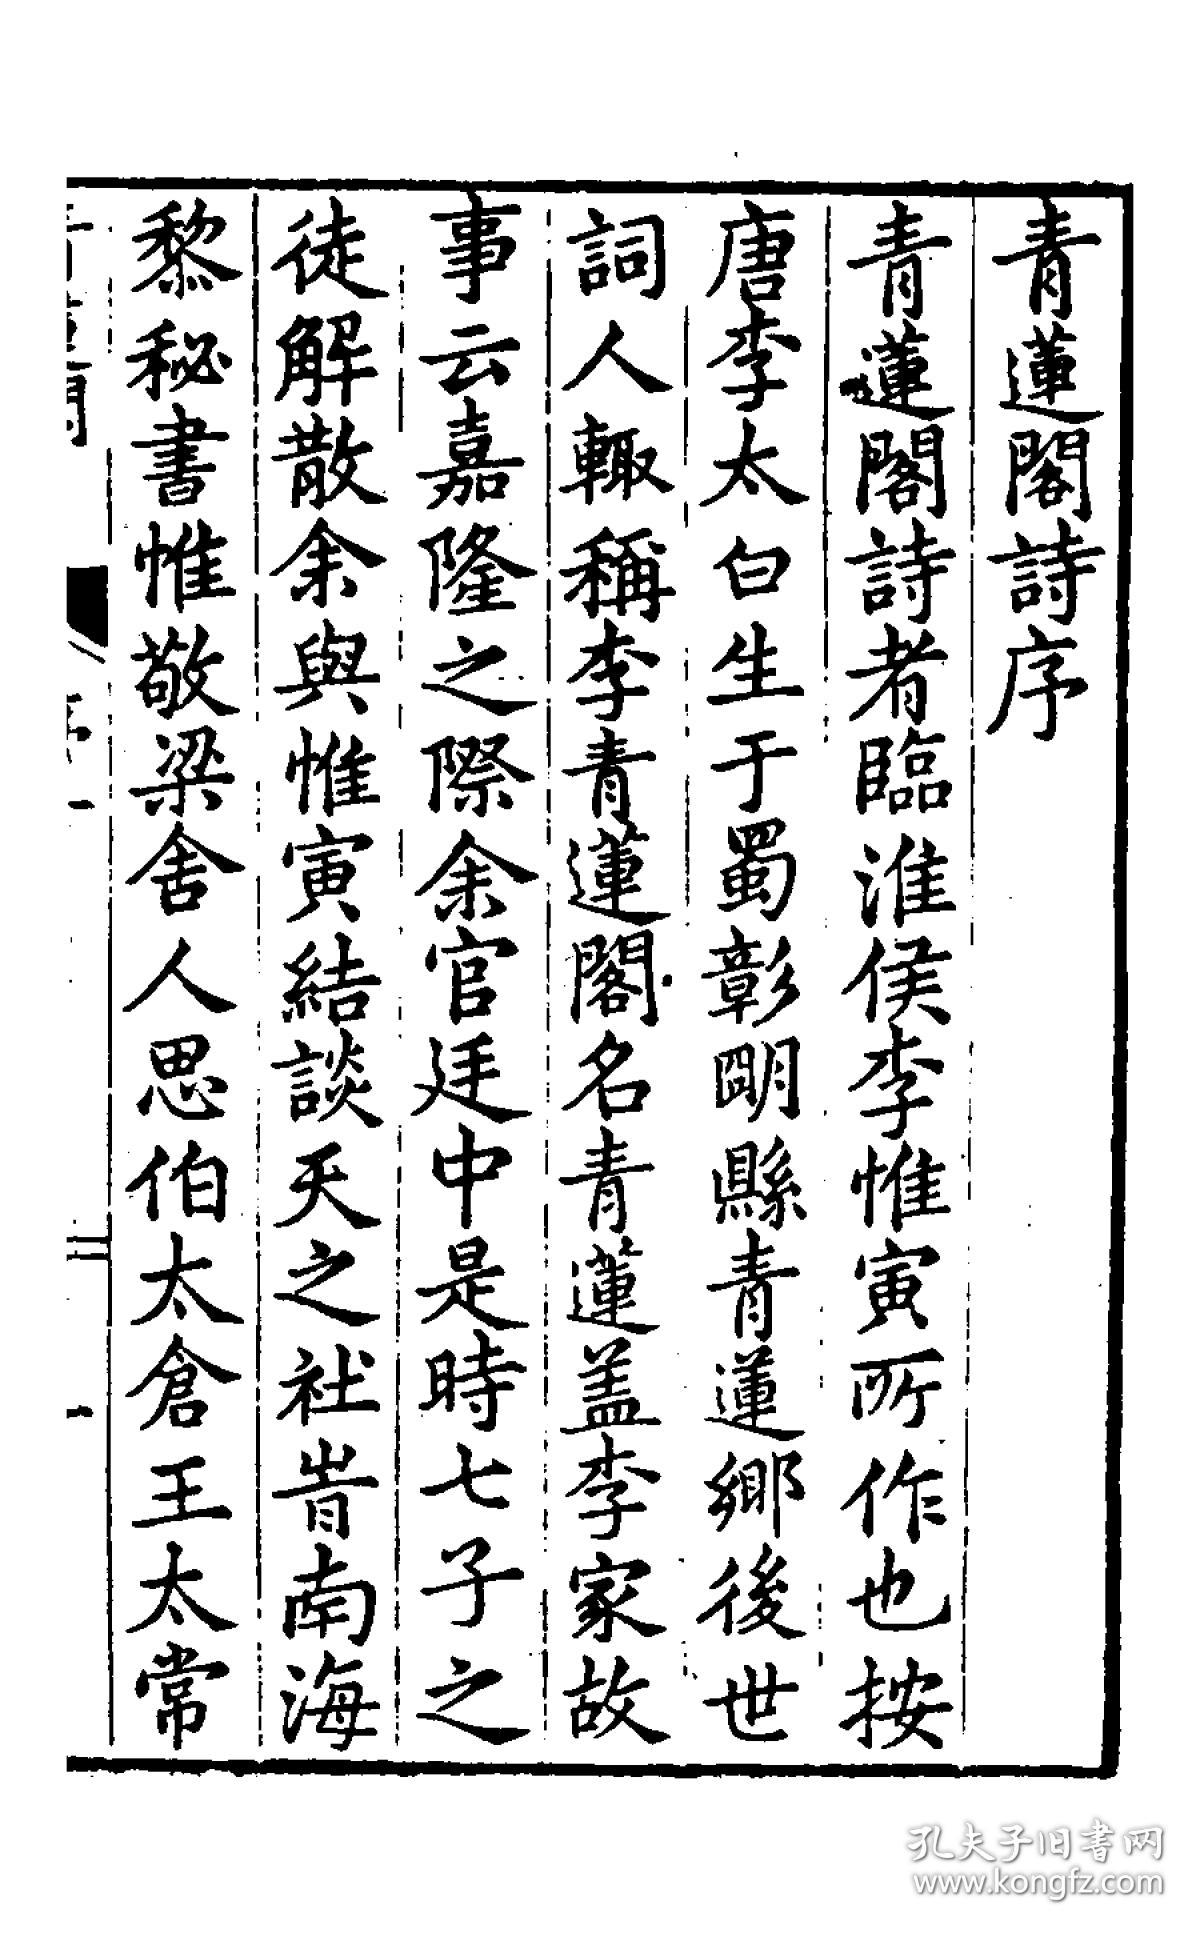 青蓮閣詩序
青蓮閣詩者臨淮侯李惟寅所作也按
唐李太白生于蜀彰明縣青蓮鄉後世
詞人輙稱李青蓮閣名青蓮盖李家故
事云嘉隆之際余官廷中是時七子之
徒解散余與惟寅結談天之社峕南海
黎秘書惟敬梁舍人思伯太倉王太常
孔夫子旧書网
www.kongfz.com